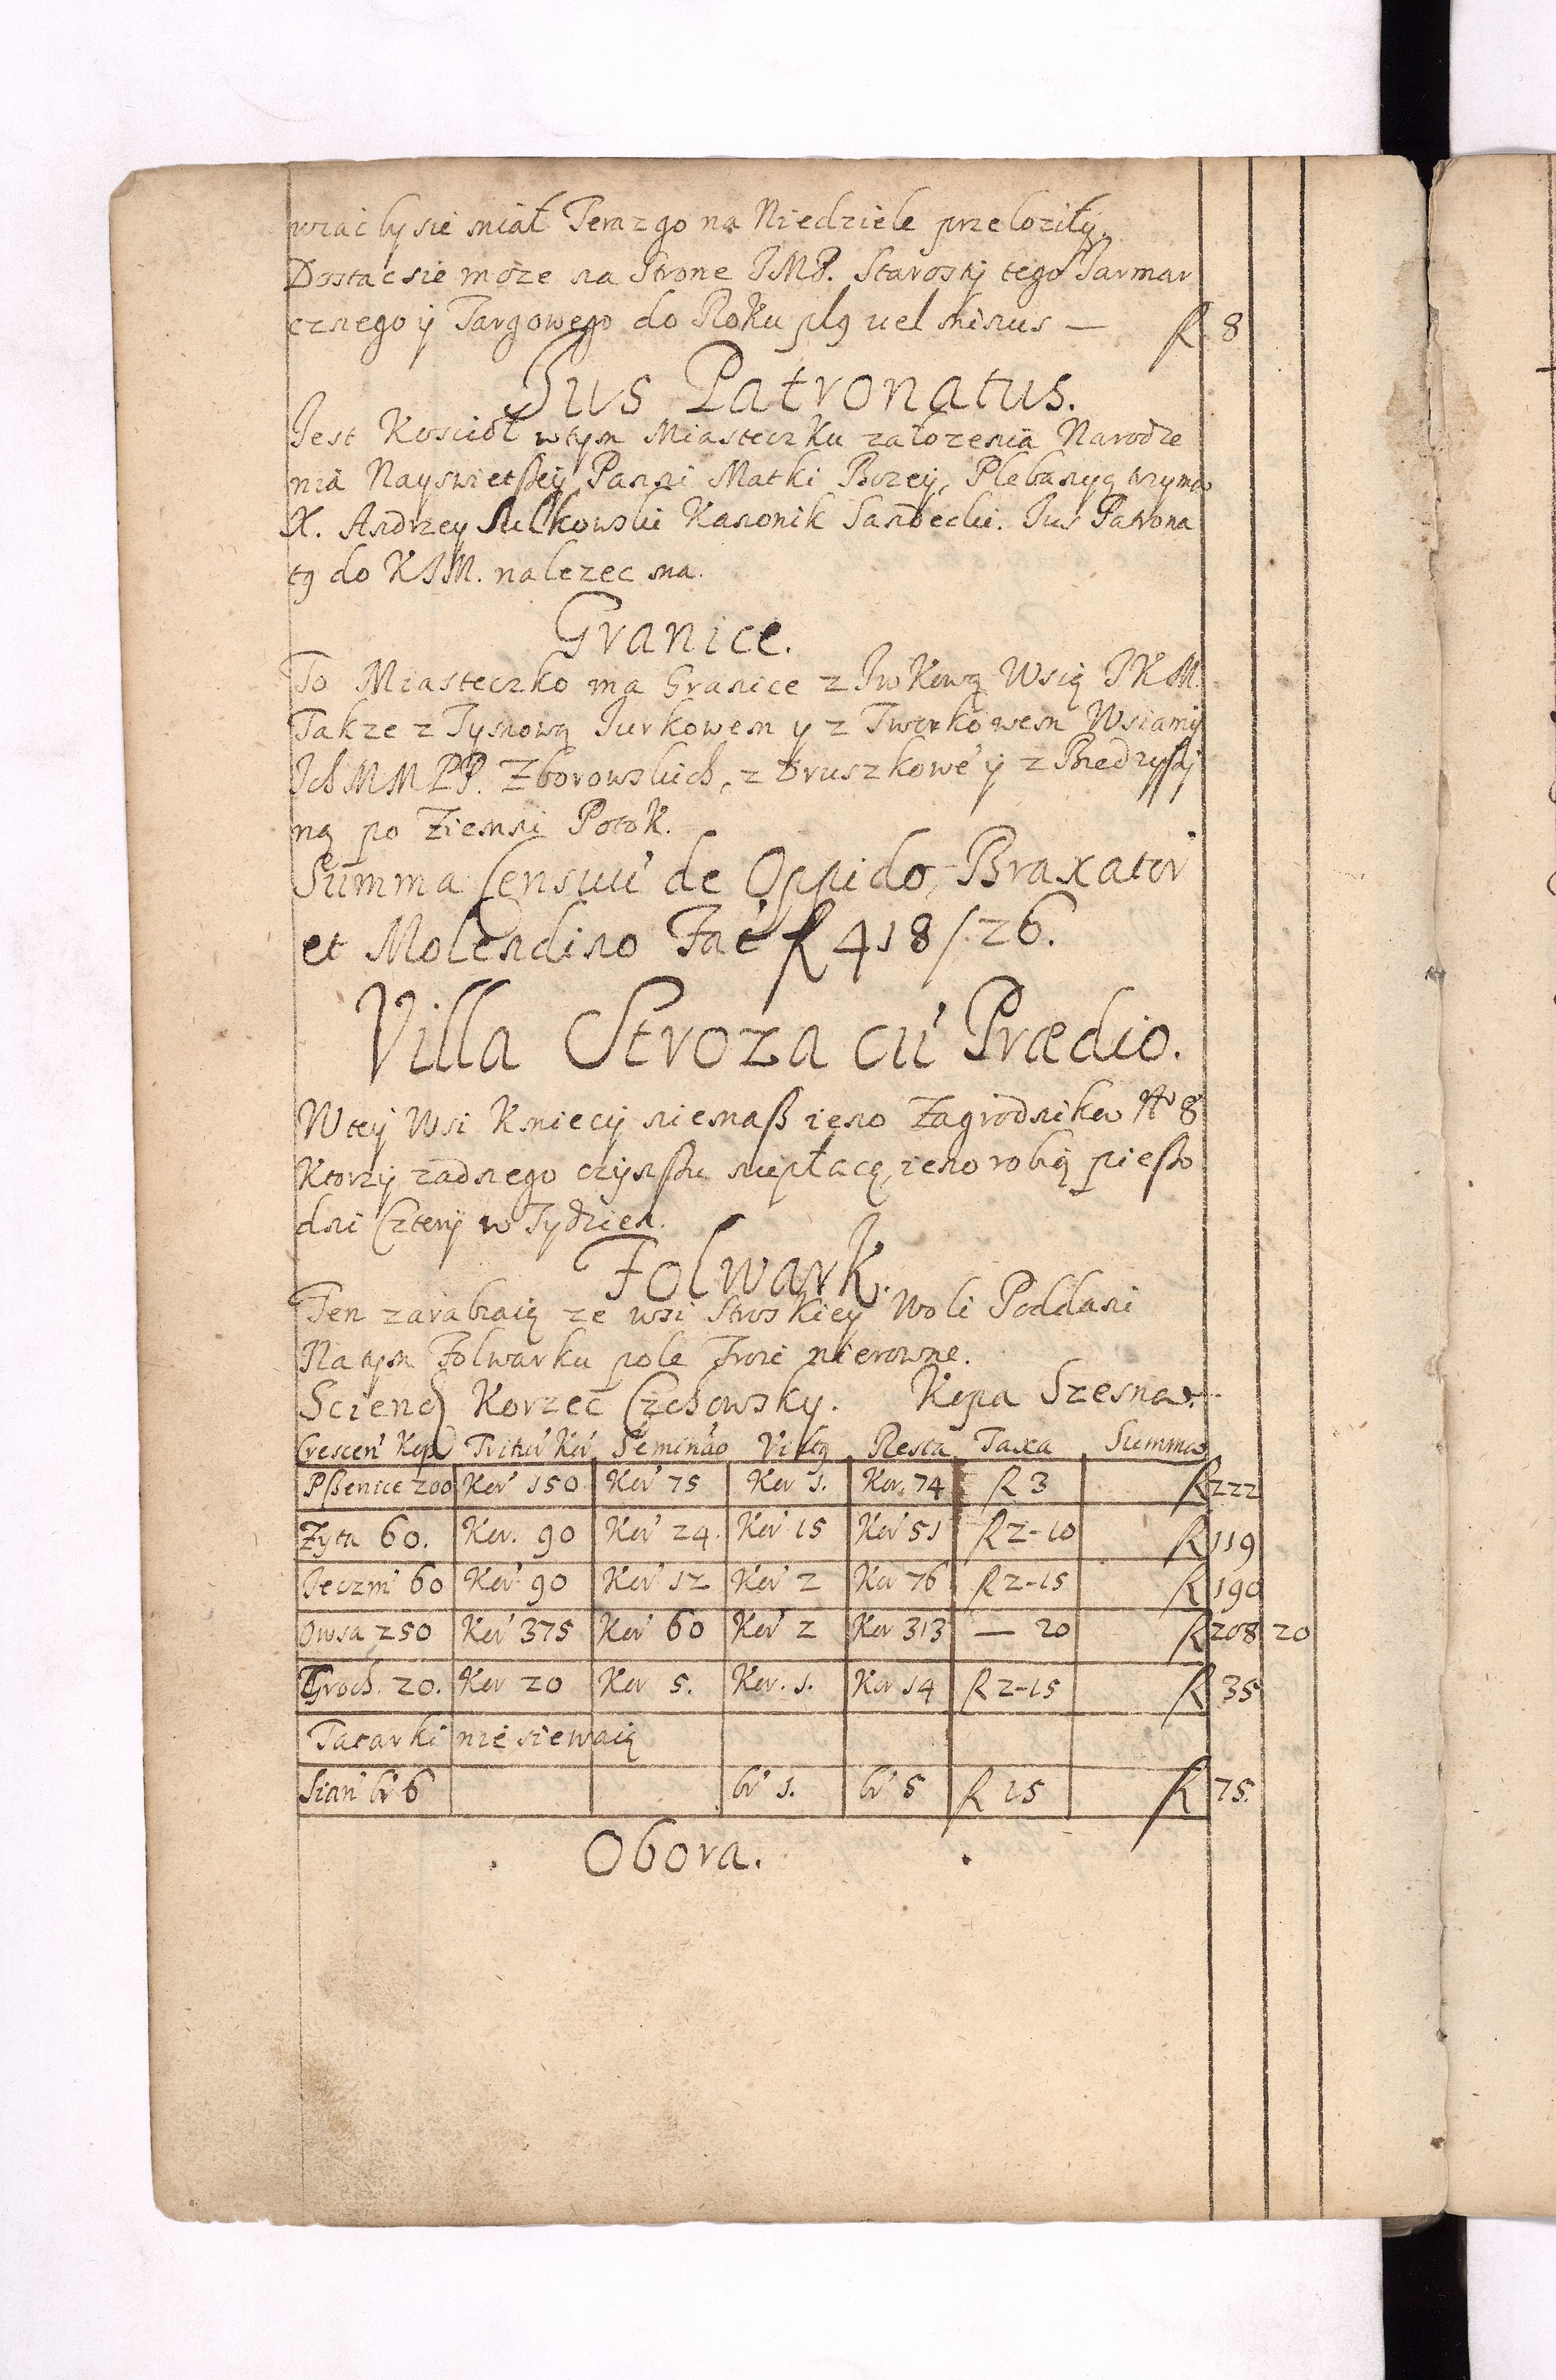 wracby sie miał Teraz go na Niedziele przełozily.
Dostac sie moze na Strone JMP. Starosty tego Jarmar
cznego ÿ Targowego do Roku plꝰ uel minus — fl 8
Jus Patronatus.
Jest Kosciół w tym Miasteczku załozenia Narodze
nia Nayswietßeÿ Panni Matki Bozeÿ, Plebanyą trzyma
X. Andrzey Sulkowski Kanonik Sandecki. Jus Patrona
tꝰ do KJM. nalezec ma.
Granice.
To Miasteczko ma Granice z Jwkową Wsią JKM.
Takze z Tymową Jurkowem y z Tworkowem Wsiamÿ
Ich MM PP. Zborowskich, z Druszkowé ÿ z Biedrzyßÿ
ną po Ziemni Potok.
Summa Censuú de Oppido, Braxator
et Molendino Fać fl 418/26.
Villa Stroza cú Prædio.
W teÿ Wsi Kmiecÿ niemaß ieno Zagrodnikow No 8
Ktorzÿ zadnego czÿnßu niepłacą, ieno robią pießo
dni Czterÿ w Tydzien.
Folwark.
Ten zarabiaią ze wsi Stroskiey Woli Poddani
Na tym Folwarku pole Troie nierowne.
Sciend Korzec Czchowsky. Kopa Szesna.
Crescen Kop Tritur Kor Seminao Victꝰ Resta Taxa Summa
Pßenice 200 Kor 150 Kor 75 Kor 1. Kor. 74 fl 3 fl 222
Zyta 60. Kor. 90 Kor 24. Kor 15 Kor 51 fl 2-10 fl 119
Jeczmi 60 Kor 90 Kor 12 Kor 2 Kor 76 fl 2-15 fl 190
Owsa 250 Kor 375 Kor 60 Kor 2 Kor 313 — 20 fl 208 20
Groch. 20. Kor 20 Kor 5. Kor. 1. Kor 14 fl 2-15 fl 35
Tatarki nie siewaią
Sian br 6 br 1. br 5 fl 15 fl 75.
Obora.